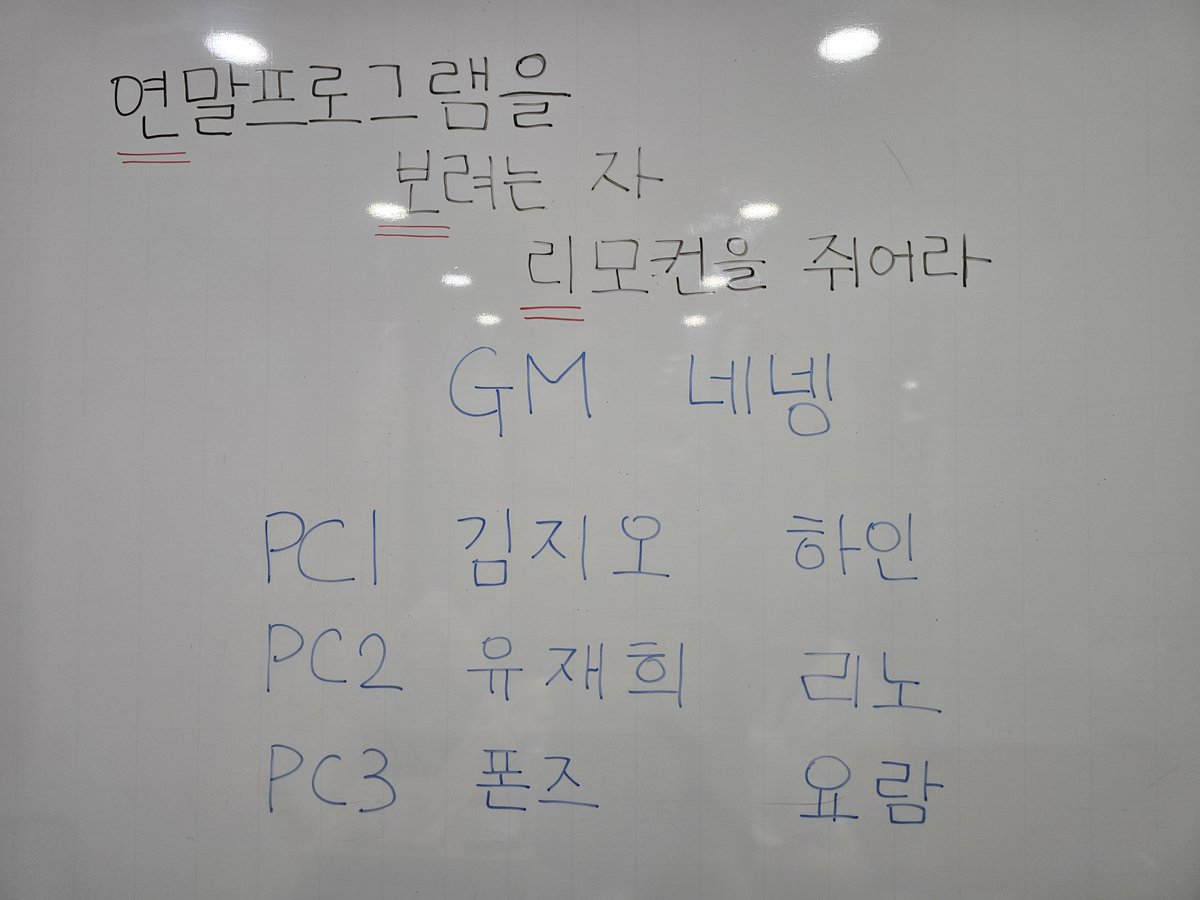 연말프로그램을
보려는 자
리모컨을 쥐어라
GM 네넹
PC1 김지오 하인
PC2 유재희 리노
PC3 폰즈 요람